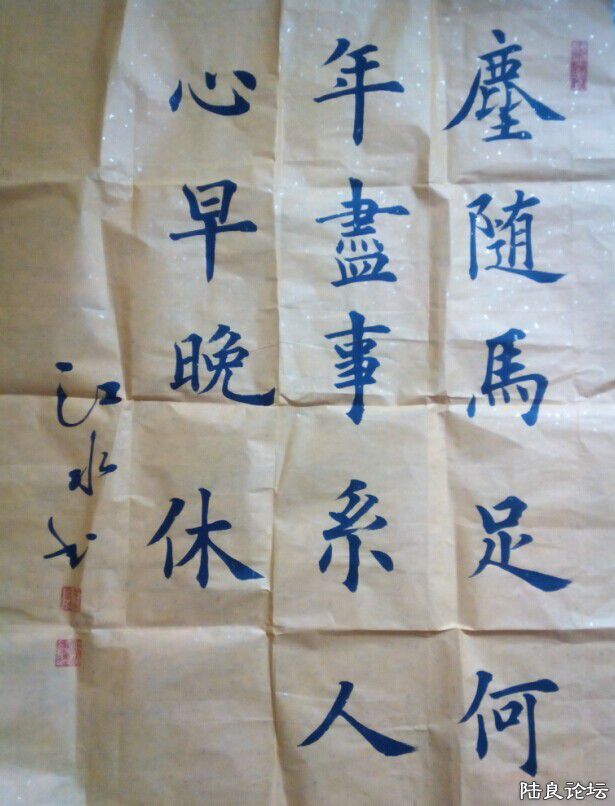 塵随馬足何
年盡事系人
心早晚休
江水书
陆良论坛